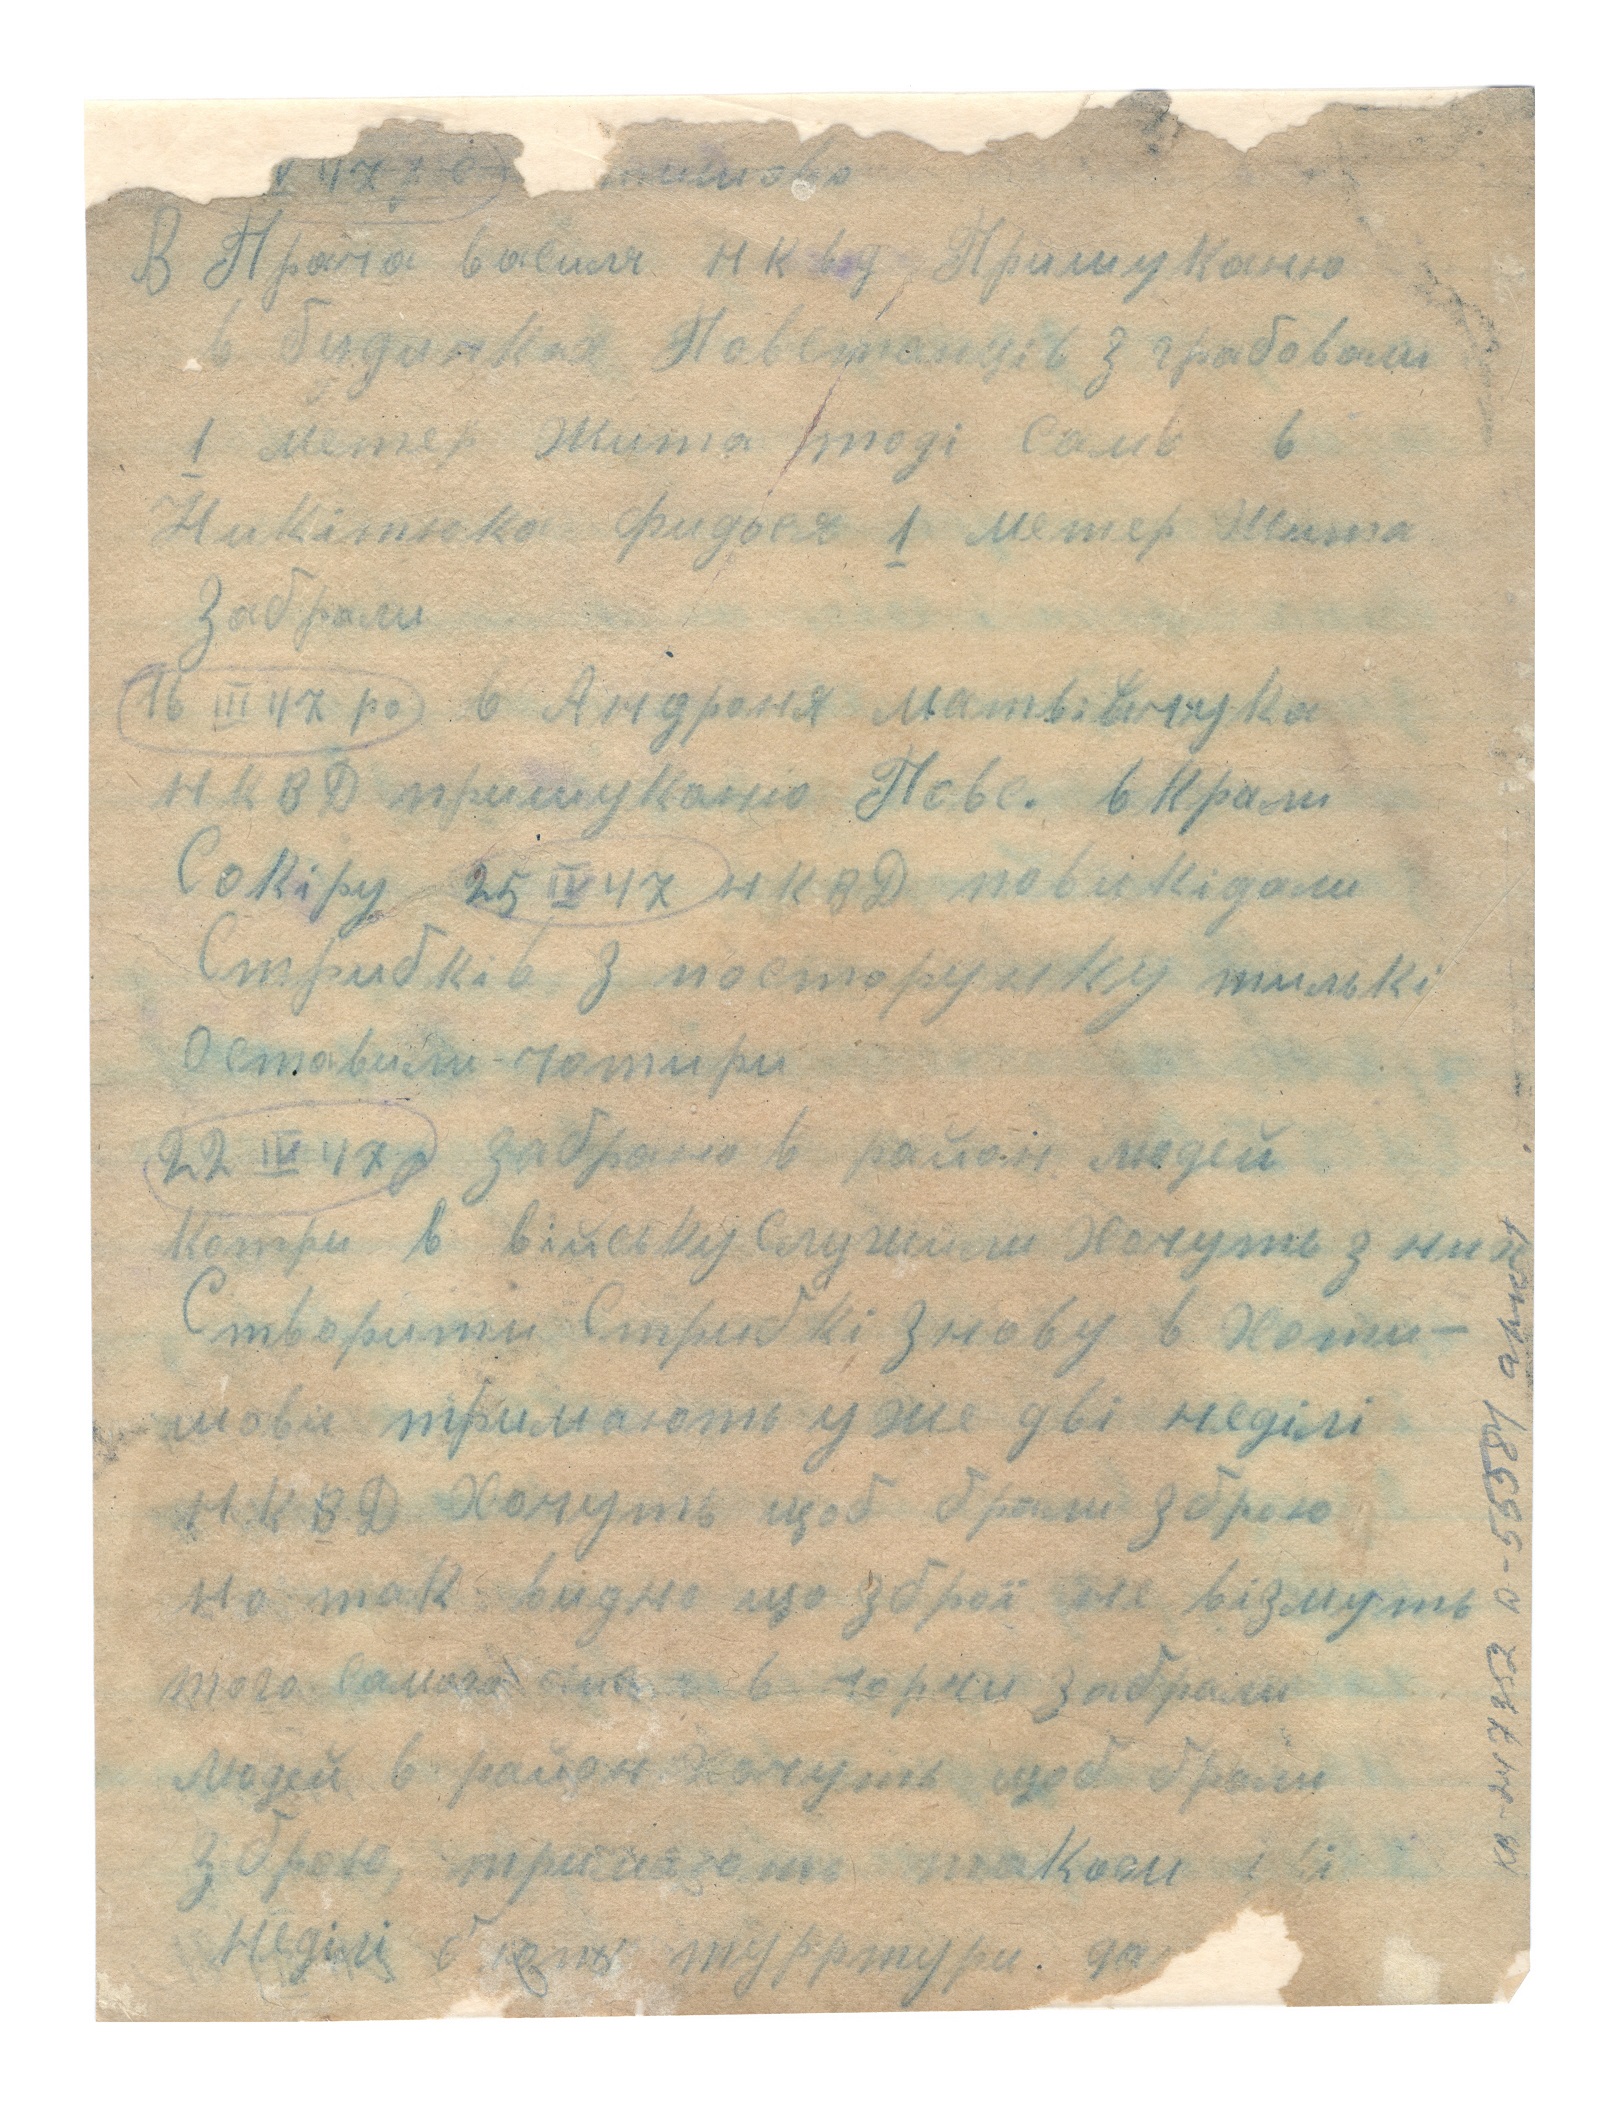 47 р
В Прача василя н к в д Пришуканю
в будинках Повстанців зграбовали
1 метер жита тоді само в
Никітюка Фидося 1 метер жита
Забрали
16 III 47 ро в Андроня Матвійчука
Н К В Д пришуканю Повс. вкрали
Сокіру 25 IV 47 Н К В Д повикідали
Стрибків з посторунку тилькі
Оставили чотири
22 IV 47 р Забрано в район людей
котри в війську Служили Хочуть з них
Створити Стрибкі знову в Хоти-
мови тримають уже дві неділі
Н К В Д Хочуть щоб брали зброю
но так видно що зброї не візмуть
того самого в забрали
людей в район Хочуть щоб брали
зброю, тримають
неділі турртури
КВ-247352 Д-5558/ арк